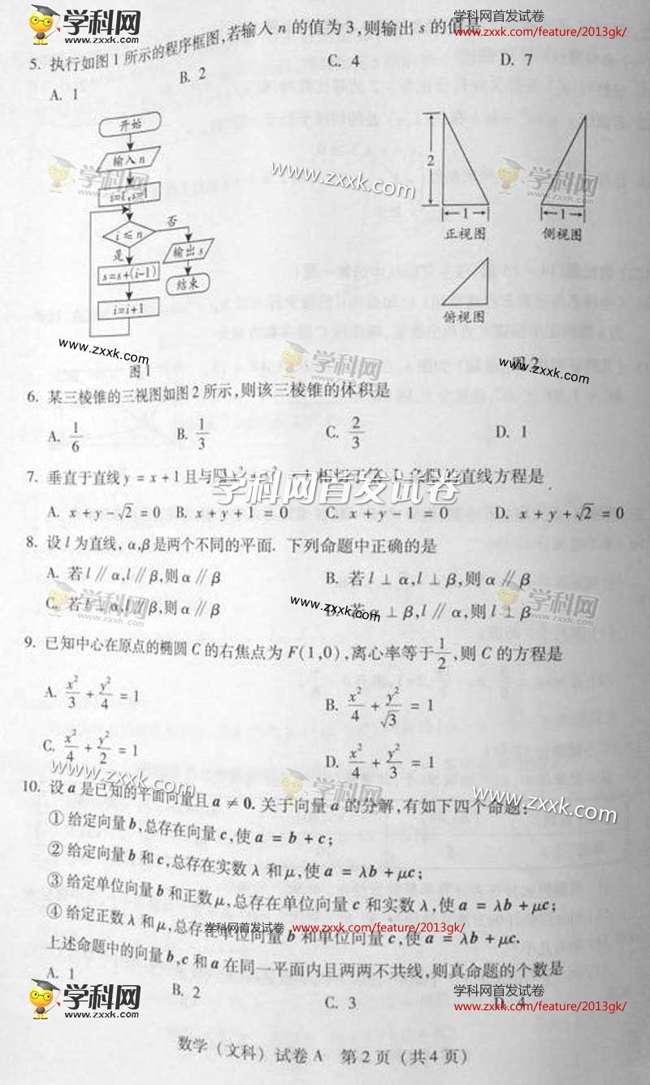 学科网
www.zxxk.com
学科网首发试卷
www.zxxk.com/feature/2013gk/
5. 执行如图1所示的程序框图,若输入 n 的值为3,则输出 s 的值是
A. 1
B. 2
C. 4
D. 7
开始
输入 n
i ≤ n
否
是
输出 s
s=s+(i-1)
结束
i=i+1
图1
2
1
正视图
1
侧视图
俯视图
图2
学科网
www.zxxk.com
学科网
www.zxxk.com
学科网
www.zxxk.com
6. 某三棱锥的三视图如图2所示,则该三棱锥的体积是
A. 1/6
B. 1/3
C. 2/3
D. 1
7. 垂直于直线 y = x + 1 且与圆 x² + y² = 1 相切于第 象限的直线方程是
学科网首发试卷
A. x + y - √2 = 0 B. x + y + 1 = 0 C. x + y - 1 = 0 D. x + y + √2 = 0
8. 设 l 为直线, α,β是两个不同的平面. 下列命题中正确的是
A. 若 l ∥ α, l ∥ β,则 α ∥ β
B. 若 l ⊥ α, l ⊥ β,则 α ∥ β
C. 若 l ⊥ α, l ∥ β,则 α ∥ β
D. 若 α ⊥ β, l ∥ α,则 l ⊥ β
学科网
www.zxxk.com
学科网
9. 已知中心在原点的椭圆 C 的右焦点为 F(1,0), 离心率等于 1/2, 则 C 的方程是
A. x²/3 + y²/4 = 1
B. x²/4 + y²/√3 = 1
C. x²/4 + y²/2 = 1
D. x²/4 + y²/3 = 1
www.zxxk.com
学科网
www.zxxk.com
10. 设 a 是已知的平面向量且 a ≠ 0. 关于向量 a 的分解, 有如下四个命题:
① 给定向量 b, 总存在向量 c, 使 a = b + c;
② 给定向量 b 和 c, 总存在实数 λ 和 μ, 使 a = λb + μc;
③ 给定单位向量 b 和正数 μ, 总存在单位向量 c 和实数 λ, 使 a = λb + μc;
④ 给定正数 λ 和 μ, 总存在单位向量 b 和单位向量 c, 使 a = λb + μc.
学科网首发试卷
www.zxxk.com/feature/2013gk/
上述命题中的向量 b, c 和 a 在同一平面内且两两不共线, 则真命题的个数是
A. 1
B. 2
C. 3
D. 4
学科网
www.zxxk.com
学科网首发试卷
www.zxxk.com/feature/2013gk/
数学(文科)试卷A 第2页(共4页)